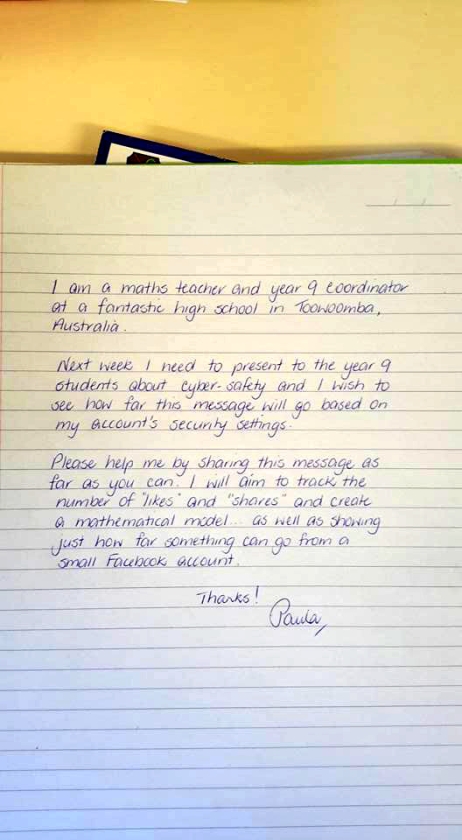 I am a maths teacher and year 9 coordinator
at a fantastic high school in Toowoomba,
Australia.
Next week I need to present to the year 9
students about cyber-safety and I wish to
see how far this message will go based on
my account's security settings.
Please help me by sharing this message as
far as you can. I will aim to track the
number of "likes" and "shares" and create
a mathematical model... as well as showing
just how far something can go from a
small Facebook account.
Thanks!
Paula